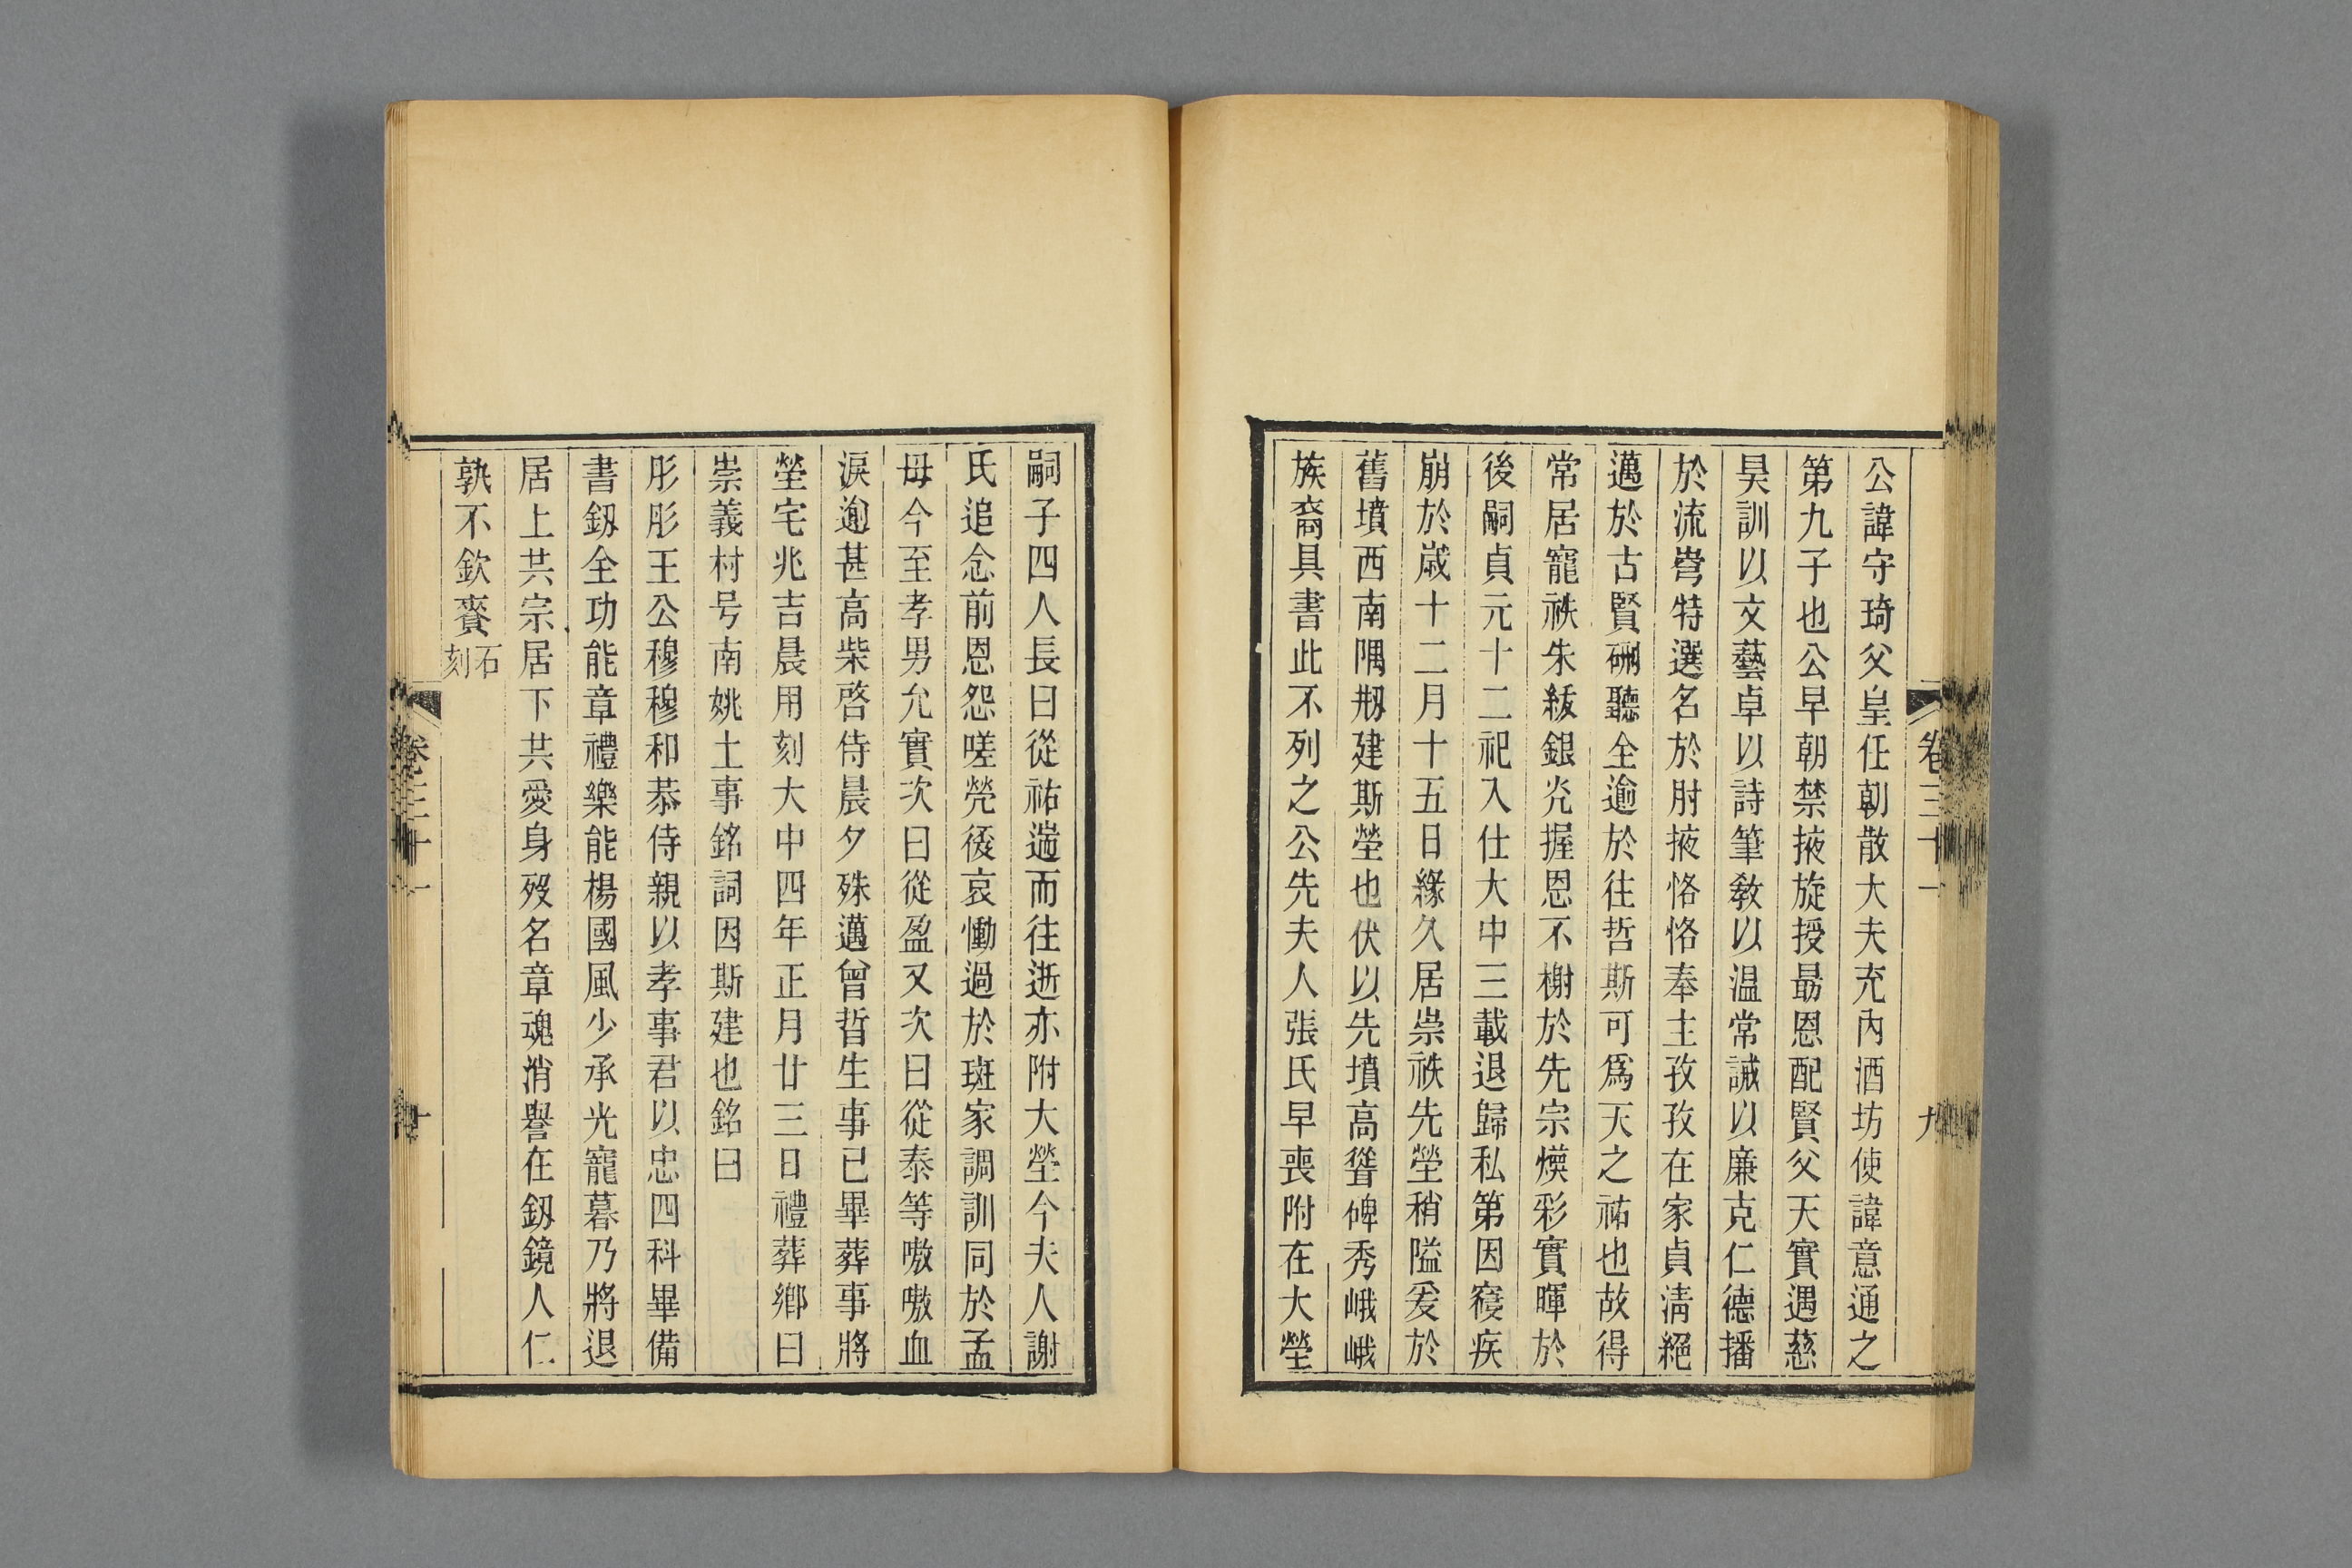 公諱守琦父皇任朝散大夫充內酒坊使諱意通之
第九子也公早朝禁掖旋授最恩配賢父天實遇慈
昊訓以文藝卓以詩筆教以温常誡以廉克仁德播
於流輩特選名於肘掖恪恪奉主孜孜在家貞淸絕
邁於古賢硎聽全逾於往哲斯可爲天之祐也故得
常居寵祑朱紱銀㳄握恩不榭於先宗煐彩實暉於
後嗣貞元十二祀入仕大中三載退歸私第因寑疾
崩於歲十二月十五日緣久居崇祑先塋稍隘爰於
舊墳西南隅刱建斯塋也伏以先墳高聳碑秀峨峨
族裔具書此不列之公先夫人張氏早喪附在大塋
嗣子四人長曰從祐遄而往逝亦附大塋今夫人謝
氏追念前恩怨嗟煢後哀慟過於班家調訓同於孟
毋今至孝男允實次曰從盈又次曰從泰等嗷嗷血
淚逾甚高柴啓侍晨夕殊邁曾晳生事已畢葬事將
塋宅兆吉晨用刻大中四年正月廿三日禮葬鄉曰
崇義村号南姚土事銘詞因斯建也銘曰
彤彤王公穆穆和恭侍親以孝事君以忠四科畢備
書釰全功能章禮樂能楊國風少承光寵暮乃將退
居上共宗居下共愛身歿名章魂消譽在釰鏡人仁
孰不欽賚石刻
卷三十一
九
卷三十一
十